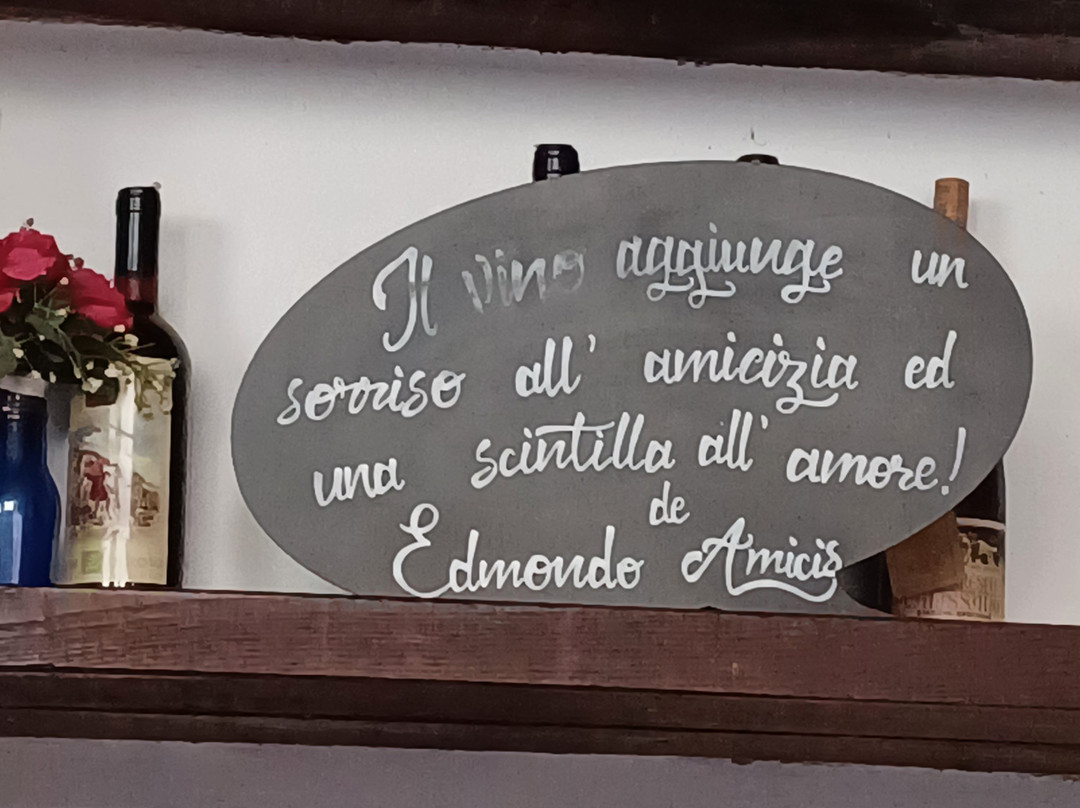 Il vino aggiunge un
sorriso all' amicizia ed
una scintilla all' amore!
de
Edmondo Amicis